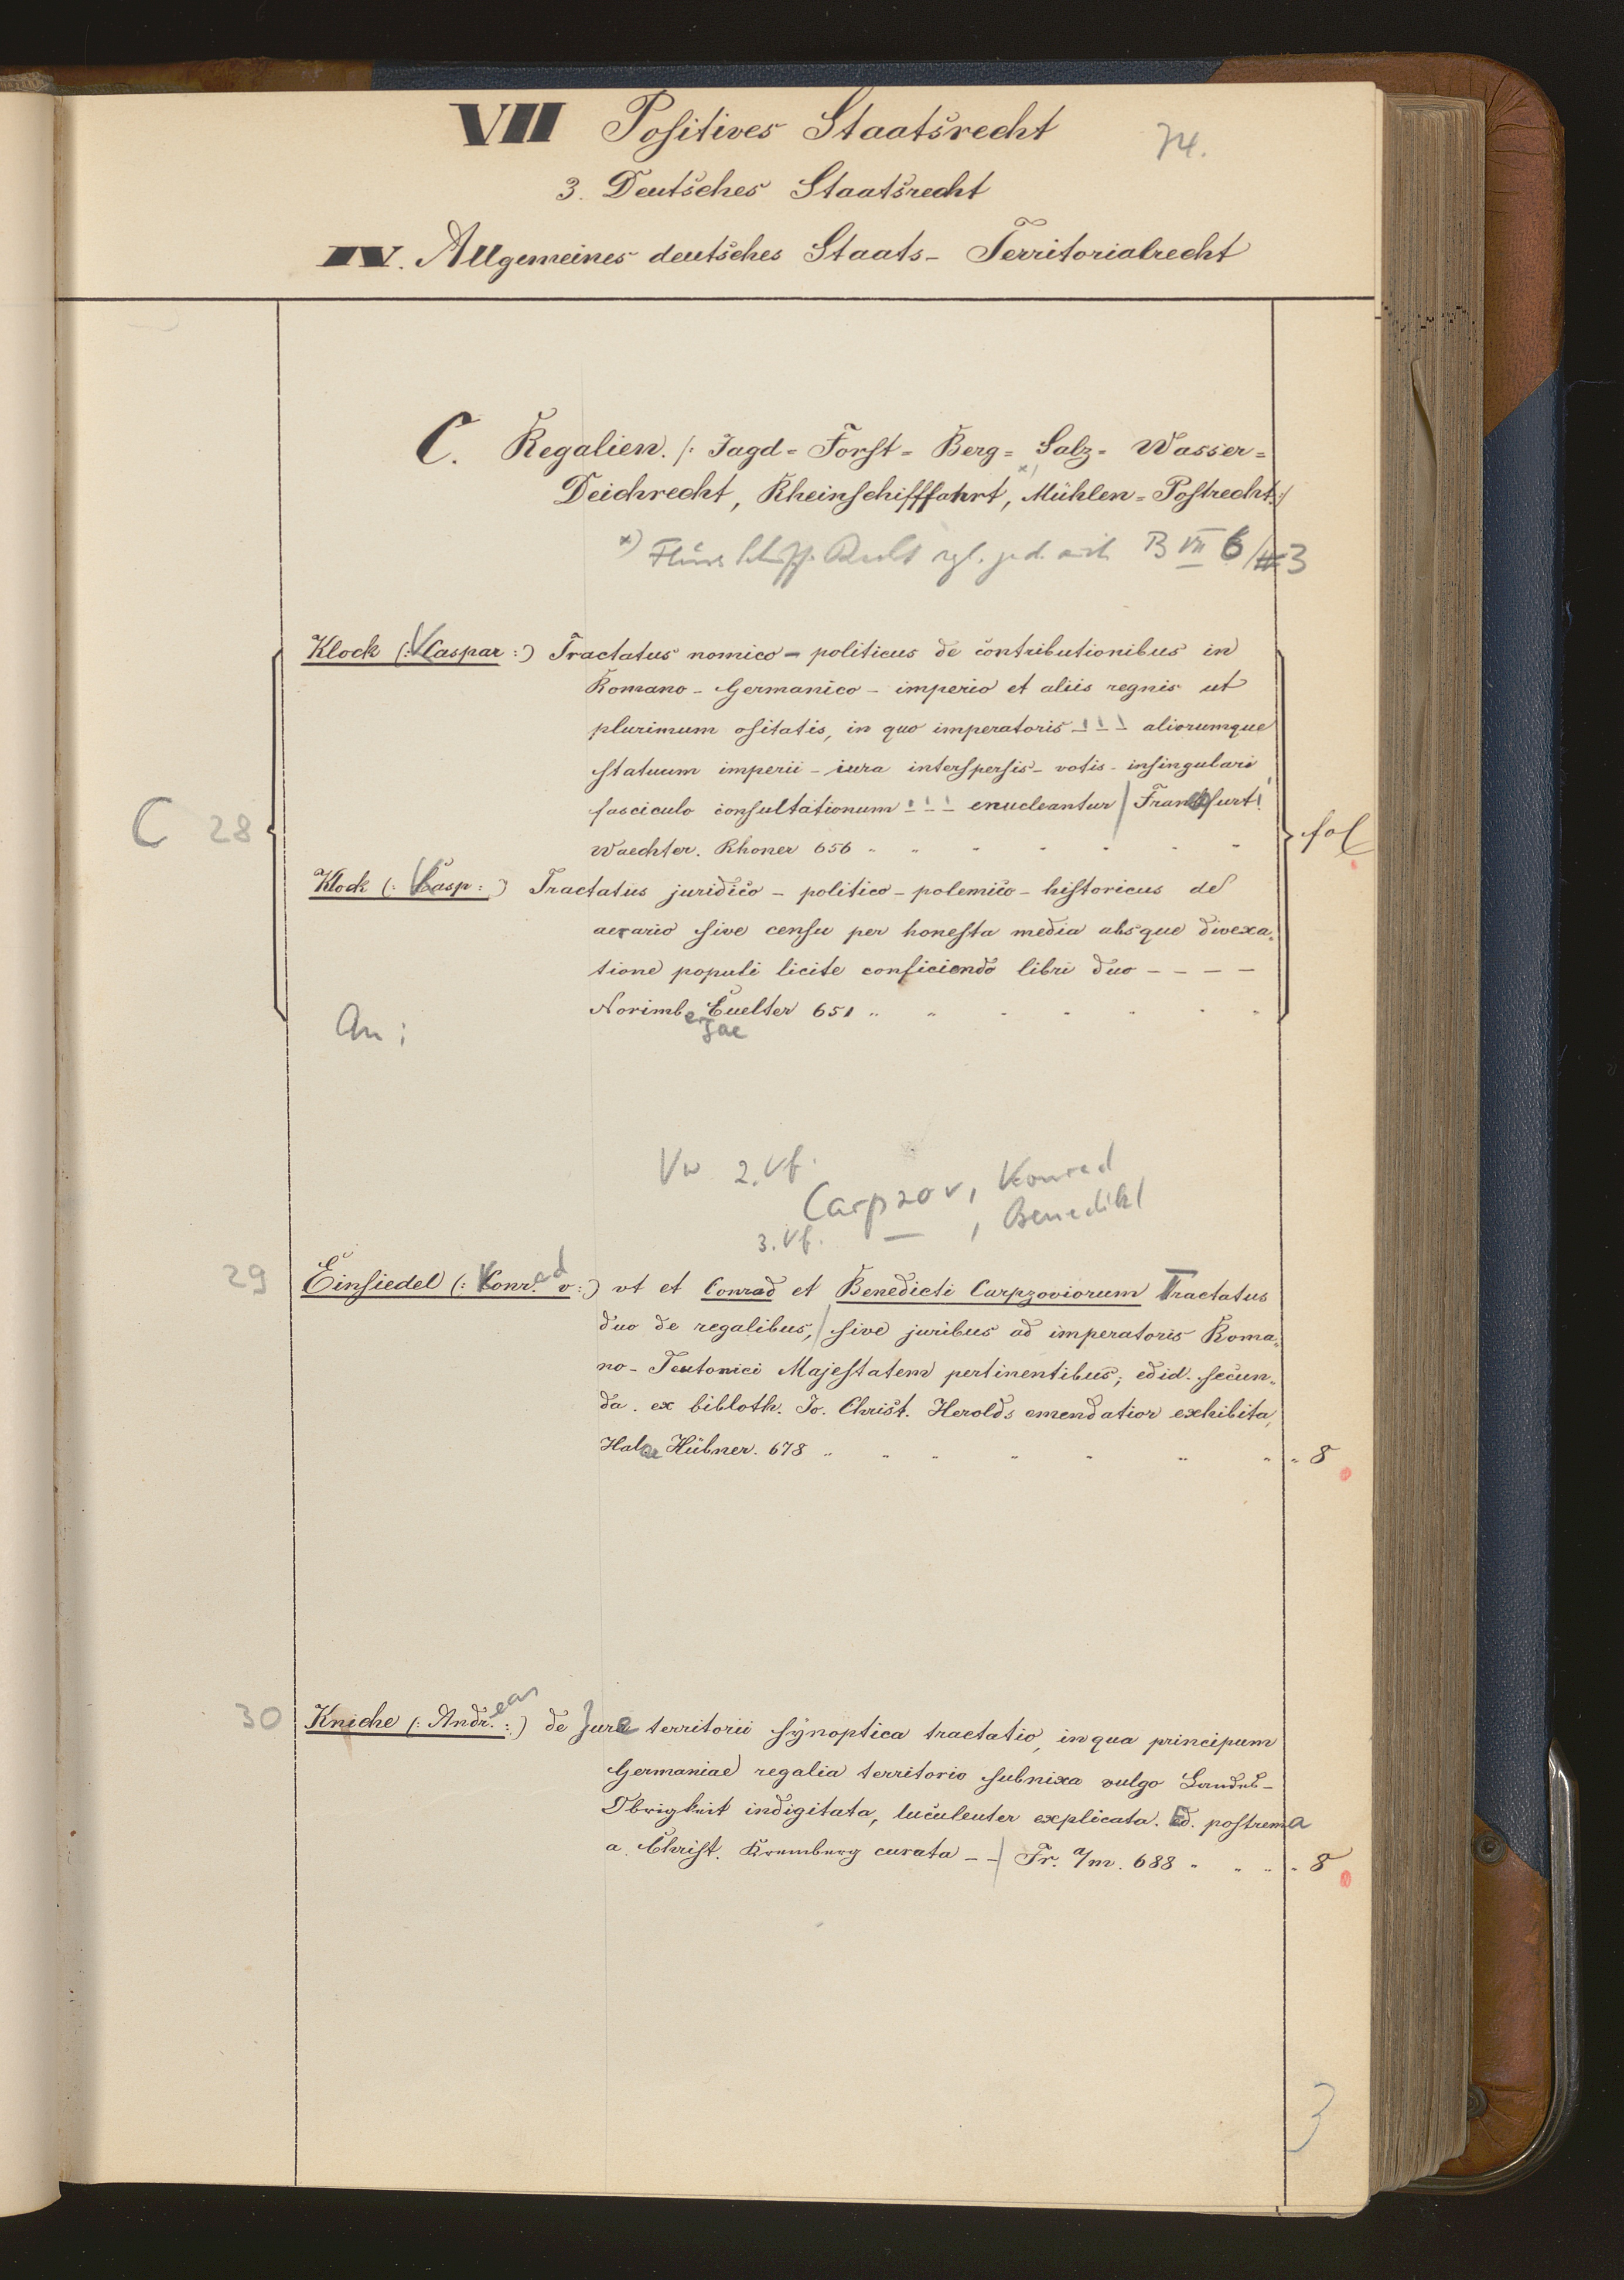 VII Positives Staatsrecht
74.
3. Deutsches Staatsrecht
IV. Allgemeines deutsches Staats- Territorialrecht
C. Regalien. /: Jagd= Forst= Berg= Salz= Wasser=
Deichrecht, Rheinschifffahrt, x) Mühlen= Postrecht :/
x) B VII 6/3
C 28
Klock (: Kaspar :) Tractatus nomico-politicus de contributionibus in
Romano-Germanico-imperio et aliis regnis ut
plurimum ositatis, in quo imperatoris _!_!_!_ aliorumque
statuum imperii-iura interspersis-votis-insingulari
fasciculo consultationum !_!_!_ enucleantur / Frankfurt!
Waechter. Rhoner 656 " " " " " " "
fol
Klock (: Kasp: :) Tractatus juridico-politico-polemico-historicus de
aerario sive censu per honesta media absque divexa=
tione populi licite conficiendo libri duo - - - -
Norimbergae Euelter 651 " " " " " " "
An:
Vw 2. Vf. Carpzov, Konrad
3. Vf. — , Benedikt
29
Einsiedel (: Konrad v :) ut et Conrad et Benedicti Carpzoviorum Tractatus
duo de regalibus, / sive juribus ad imperatoris Roma=
no-Teutonici Majestatem pertinentibus; edid. secun=
da. ex bibloth. Jo. Christ. Herolds emendatior exhibita,
Halae Hübner. 678 " " " " " " " " 8
30
Kniche (: Andreas :) de Jure territorii synoptica tractatio, in qua principum
Germaniae regalia territorio subnixa vulgo Landes-
Obrigkeit indigitata, luculenter explicata. Ed. postrema
a. Christ. Krumburg curata - - / Fr. a/m. 688 " " " " 8
3